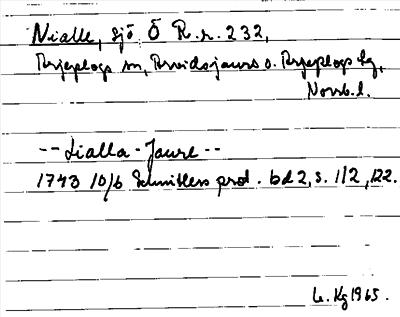 Nialle, sjö Ö R.r. 232,
Arjeplogs sn, Arvidsjaurs o. Arjeplogs lg,
Norrb.l.
-- Lialla-Jaure --
1743 10/6 Schnitlers prot. bd 2, s. 112, 122.
Kg 1965.